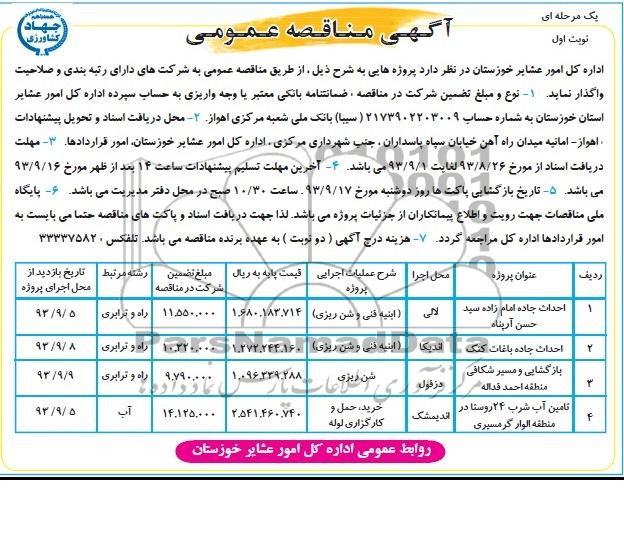 یک مرحله ای
نوبت اول
آگهی مناقصه عمومی
جهاد
کشاورزی
اداره کل امور عشایر خوزستان در نظر دارد پروژه هایی به شرح ذیل ، از طریق مناقصه عمومی به شرکت های دارای رتبه بندی و صلاحیت
واگذار نماید. ۱- نوع و مبلغ تضمین شرکت در مناقصه ، ضمانتنامه بانکی معتبر یا وجه واریزی به حساب سپرده اداره کل امور عشایر
استان خوزستان به شماره حساب ۲۱۷۳۹۰۲۲۰۳۰۰۹ ( سیبا) بانک ملی شعبه مرکزی اهواز. ۲- محل دریافت اسناد و تحویل پیشنهادات
، اهواز- امانیه میدان راه آهن خیابان سپاه پاسداران ، جنب شهرداری مرکزی ، اداره کل امور عشایر خوزستان، امور قراردادها. ۳- مهلت
دریافت اسناد از مورخ ۹۳/۸/۲۶ لغایت ۹۳/۹/۱ می باشد. ۴- آخرین مهلت تسلیم پیشنهادات ساعت ۱۴ بعد از ظهر مورخ ۹۳/۹/۱۶
می باشد. ۵- تاریخ بازگشایی پاکت ها روز دوشنبه مورخ ۹۳/۹/۱۷ . ساعت ۱۰/۳۰ صبح در محل دفتر مدیریت می باشد. ۶- پایگاه
ملی مناقصات جهت رویت و اطلاع پیمانکاران از جزئیات پروژه می باشد. لذا جهت دریافت اسناد و پاکت های مناقصه حتما می بایست به
امور قراردادها اداره کل مراجعه گردد. ۷- هزینه درج آگهی ( دو نوبت ) به عهده برنده مناقصه می باشد. تلفکس : ۳۳۳۳۷۵۸۲۰
ردیف عنوان پروژه محل اجرا شرح عملیات اجرایی پروژه قیمت پایه به ریال مبلغ تضمین شرکت در مناقصه رشته مرتبط تاریخ بازدید از محل اجرای پروژه
۱ احداث جاده امام زاده سید حسن آرپناه لالی ( ابنیه فنی و شن ریزی) ۱،۶۸۰،۱۸۳،۷۱۴ ۱۱،۵۵۰،۰۰۰ راه و ترابری ۹۳/ ۹/ ۵
۲ احداث جاده باغات کتک اندیکا ( ابنیه فنی و شن ریزی) ۱،۲۷۲،۲۴۴،۱۶۰ ۱۰،۳۲۰،۰۰۰ راه و ترابری ۹۳/ ۹/ ۸
۳ بازگشایی و مسیر شکافی منطقه احمد فداله دزفول شن ریزی ۱،۰۹۶،۳۳۹،۲۸۸ ۹،۷۹۰،۰۰۰ راه و ترابری ۹۳/ ۹/۹
۴ تامین آب شرب ۲۴روستا در منطقه الوار گرمسیری اندیمشک خرید، حمل و کارگزاری لوله ۲،۵۴۱،۴۶۰،۷۴۰ ۱۴،۱۲۵،۰۰۰ آب ۹۳/ ۹/ ۵
ParsNamadData
مرکز فرآوری اطلاعات پارس نماد داده ها
روابط عمومی اداره کل امور عشایر خوزستان